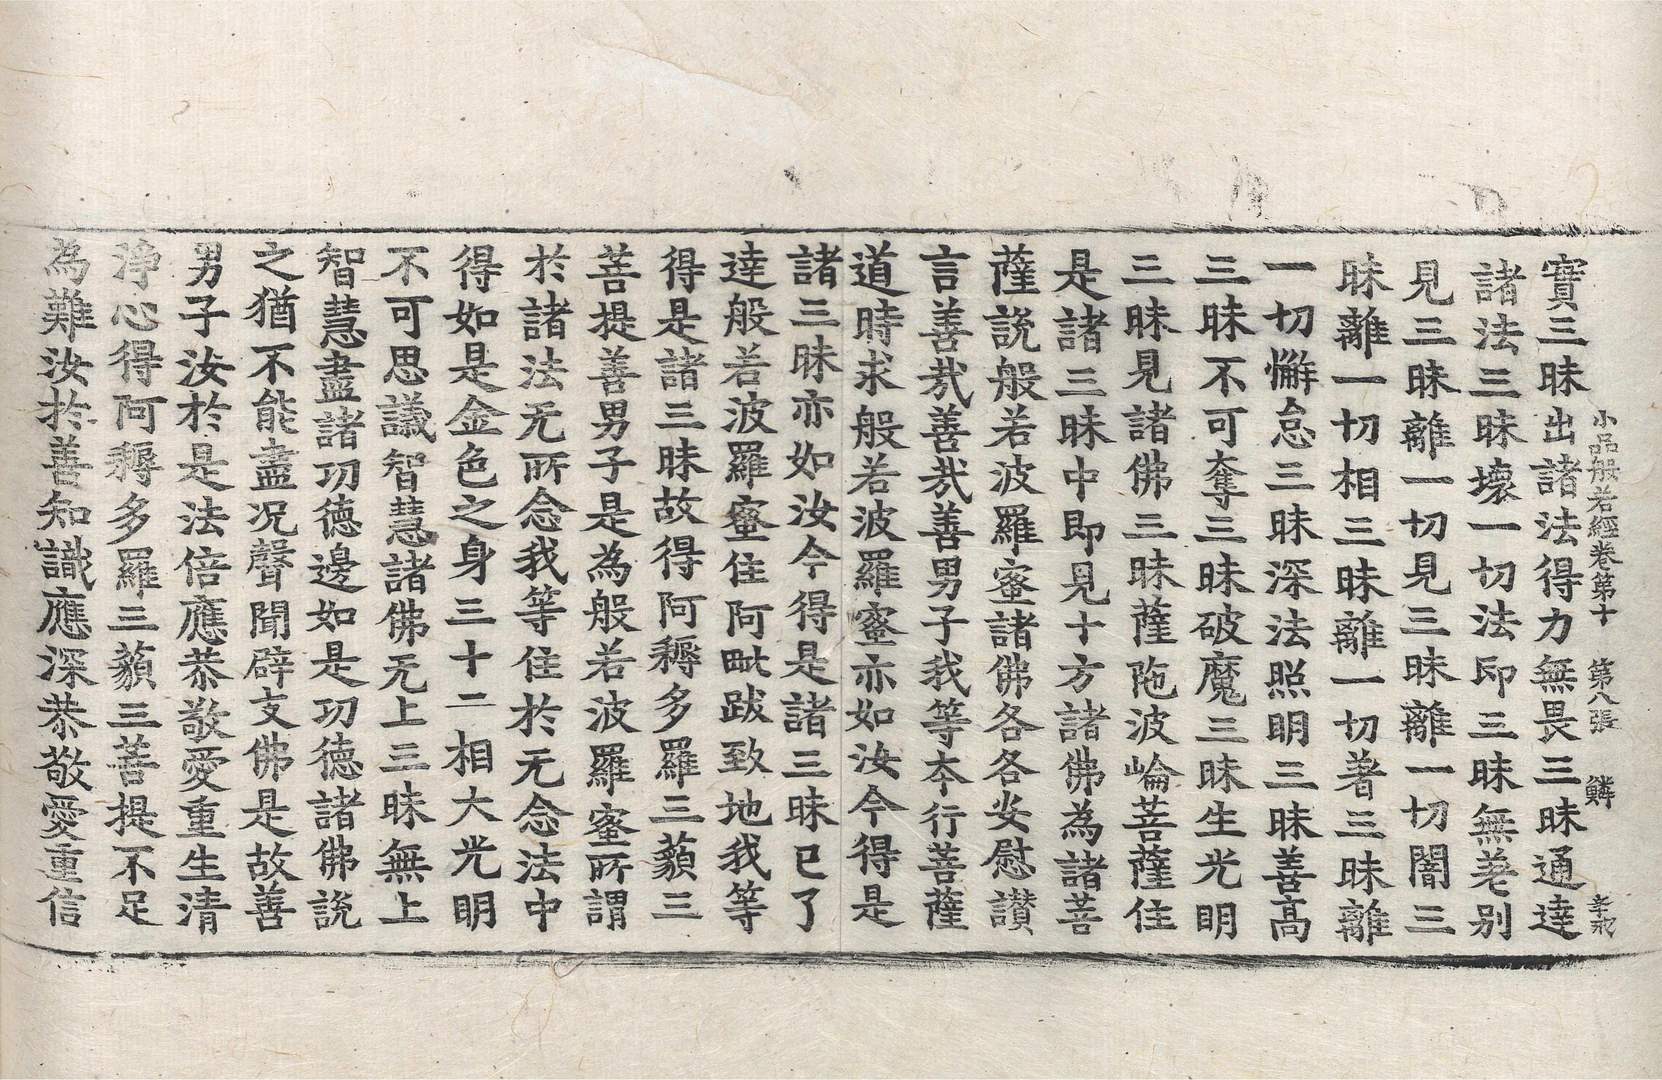 小品般若經卷第十　第八張　鱗　辛戒
寶三昧出諸法得力無畏三昧通達
諸法三昧壞一切法印三昧無差別
見三昧離一切見三昧離一切闇三
昧離一切相三昧離一切著三昧離
一切懈怠三昧深法照明三昧善高
三昧不可奪三昧破魔三昧生光明
三昧見諸佛三昧薩陁波崘菩薩住
是諸三昧中即見十方諸佛為諸菩
薩說般若波羅蜜諸佛各各安慰讃
言善㢤善㢤善男子我等夲行菩薩
道時求般若波羅蜜亦如汝今得是
諸三昧亦如汝今得是諸三昧已了
達般若波羅蜜住阿毗跋致地我等
得是諸三昧故得阿耨多羅三藐三
菩提善男子是為般若波羅蜜所謂
於諸法无所念我等住於无念法中
得如是金色之身三十二相大光明
不可思議智慧諸佛无上三昧無上
智慧盡諸功德邊如是功德諸佛說
之猶不能盡况聲聞辟支佛是故善
男子汝於是法倍應恭敬愛重生清
淨心得阿耨多羅三藐三菩提不足
為難汝於善知識應深恭敬愛重信